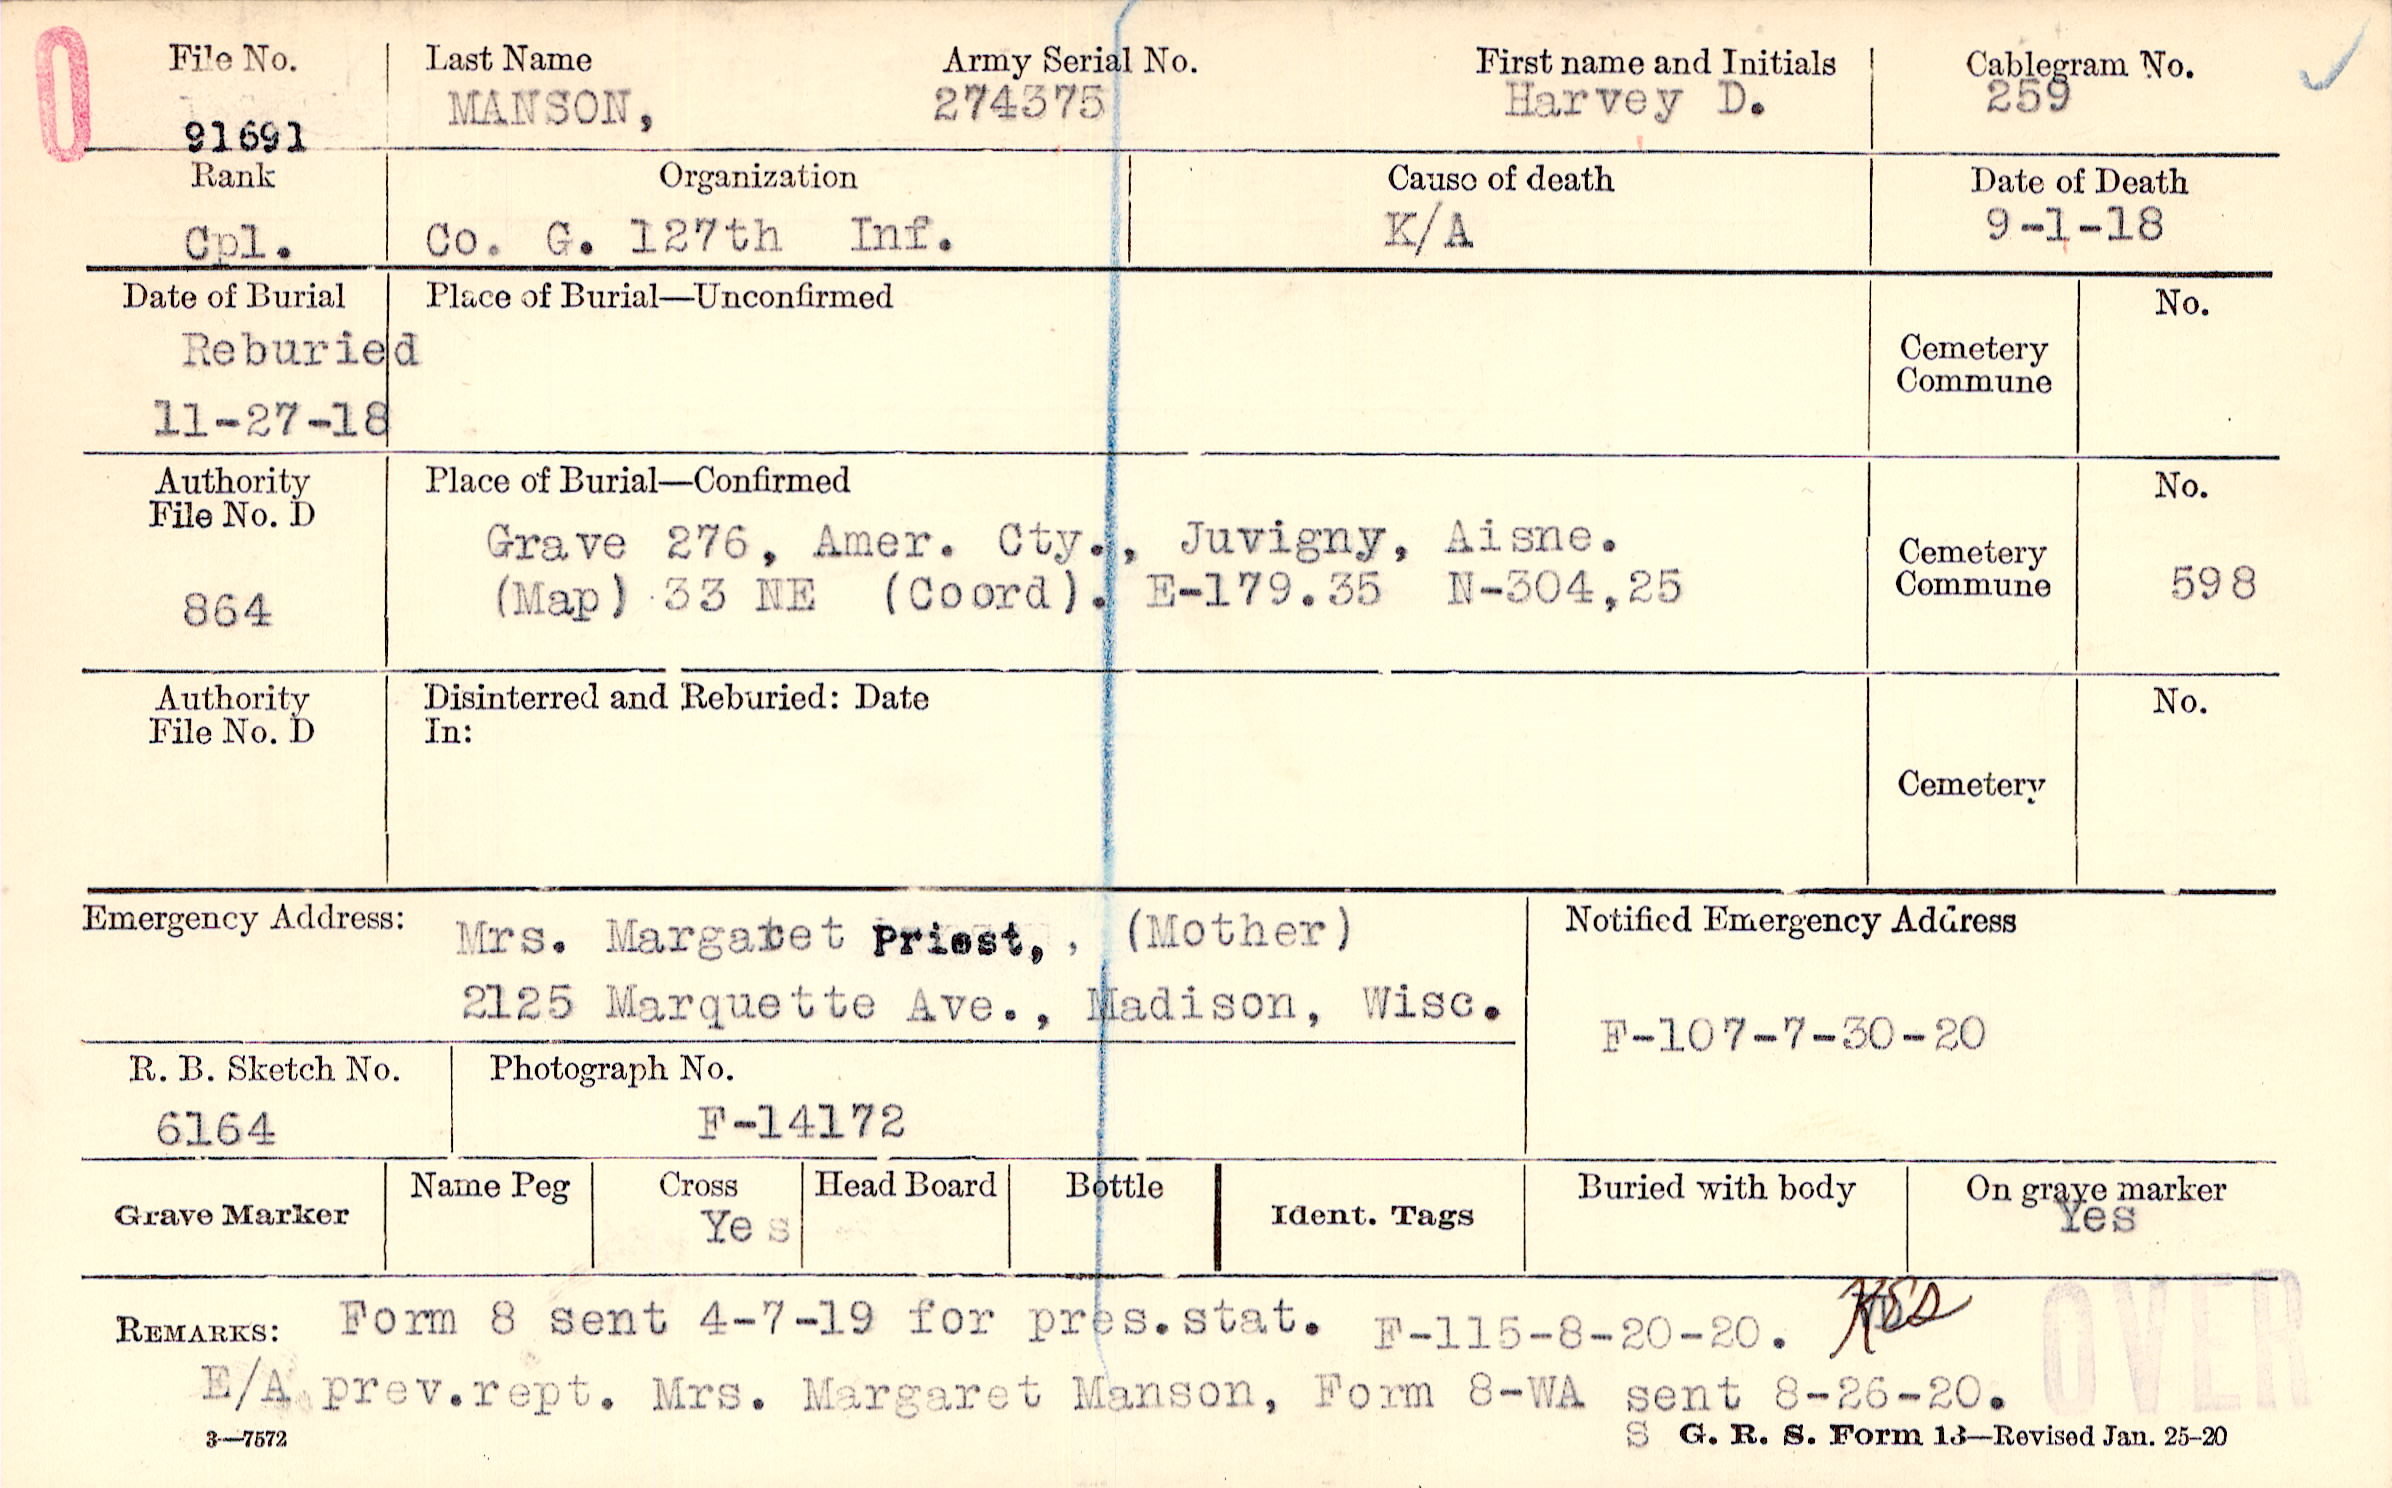 0
File No. Last Name Army Serial No. First name and Initials Cablegram No.
91691 MANSON, 274375 Harvey D. 259
Rank Organization Cause of death Date of Death
Cpl. Co. G. 127th Inf. K/A 9-1-18
Date of Burial Place of Burial—Unconfirmed No.
Reburied Cemetery
Commune
11-27-18
Authority Place of Burial—Confirmed No.
File No. D
Grave 276, Amer. Cty., Juvigny, Aisne. Cemetery
864 (Map) 33 NE (Coord). E-179.35 N-304,25 Commune 598
Authority Disinterred and Reburied: Date No.
File No. D In:
Cemetery
Emergency Address: Mrs. Margaret Priest, , (Mother) Notified Emergency Address
2125 Marquette Ave., Madison, Wisc.
F-107-7-30-20
R. B. Sketch No. Photograph No.
6164 F-14172
Grave Marker Name Peg Cross Head Board Bottle Ident. Tags Buried with body On grave marker
Yes Yes
REMARKS: Form 8 sent 4-7-19 for pres.stat. F-115-8-20-20.
E/A prev.rept. Mrs. Margaret Manson, Form 8-WA sent 8-26-20. OVER
3—7572 S G. R. S. Form 13—Revised Jan. 25-20